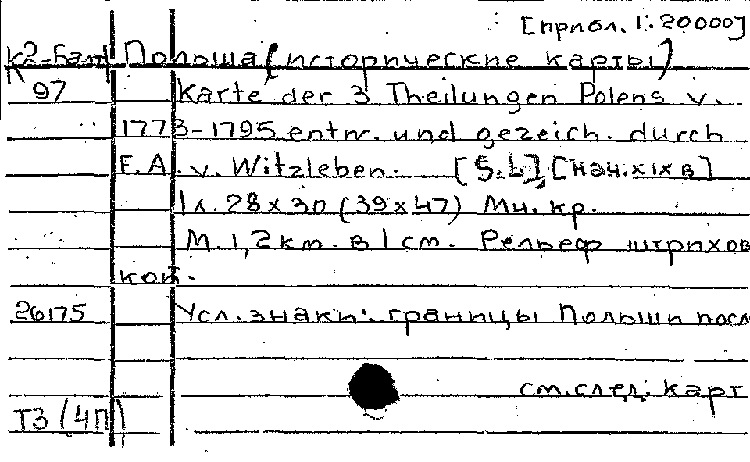 [прпол. 1:20000]
К2-Балт Польша (исторические карты)
К 97 Karte der 3 Theilungen Polens v.
1773-1795 entw. und gezeich. durch
E.A. v. Witzleben. [S.L], [нач. XIX в]
1 л. 28 x 30 (39 x 47) Мн. кр.
М. 1,2 km. в 1 см. Рельеф штрихов
кой.
26175 Усл. знаки: границы Польши посл
см. след. карт
ТЗ (4П)